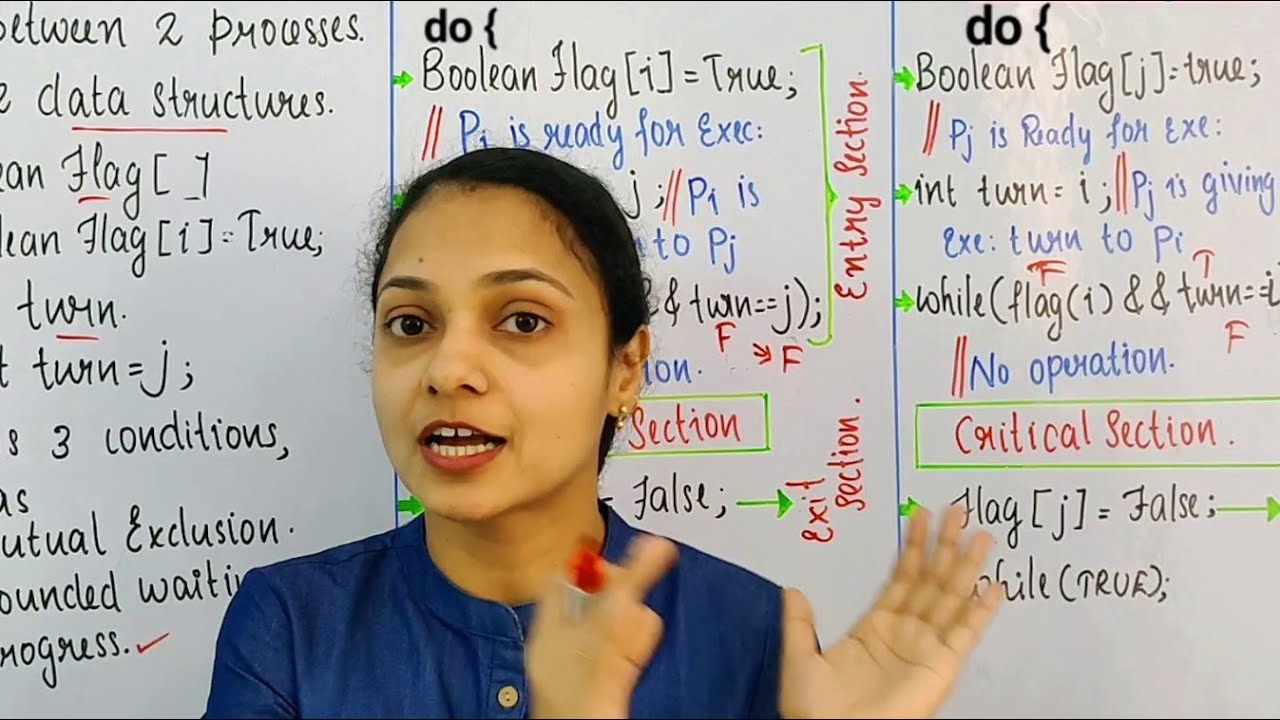 between 2 processes.
data structures.
Flag[ ]
Flag[i]=True;
turn.
turn=j;
3 conditions,
as
Mutual Exclusion.
Bounded waiting
Progress. ✓
do {
Boolean Flag[i]=True;
// Pi is ready for Exec:
j ; // Pi is
to Pj
& turn==j);
F → F
Section
= False; →
Entry Section.
Exit Section.
do {
Boolean Flag[j]=true;
// Pj is Ready for Exe:
int turn= i ; // Pj is giving
Exe: turn to Pi
F T
while(flag(i) && turn==i
F
// No operation.
Critical Section.
Flag[j] = False;
while(TRUE);